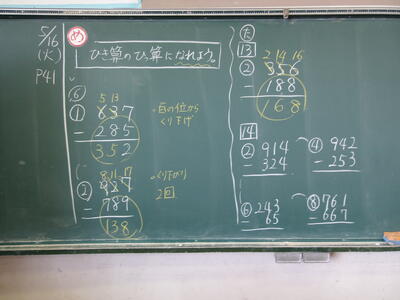 5/16
(火)
P41
め
ひき算のひっ算になれよう。
⑥
5 13
① 637
- 285
352
百の位から
くり下げ
8 11 17
② 927
- 789
138
くり下がり
2回
た
13
2 14 16
② 356
- 188
168
14
② 914
- 324
④ 942
- 253
⑥ 243
- 65
⑧ 761
- 667